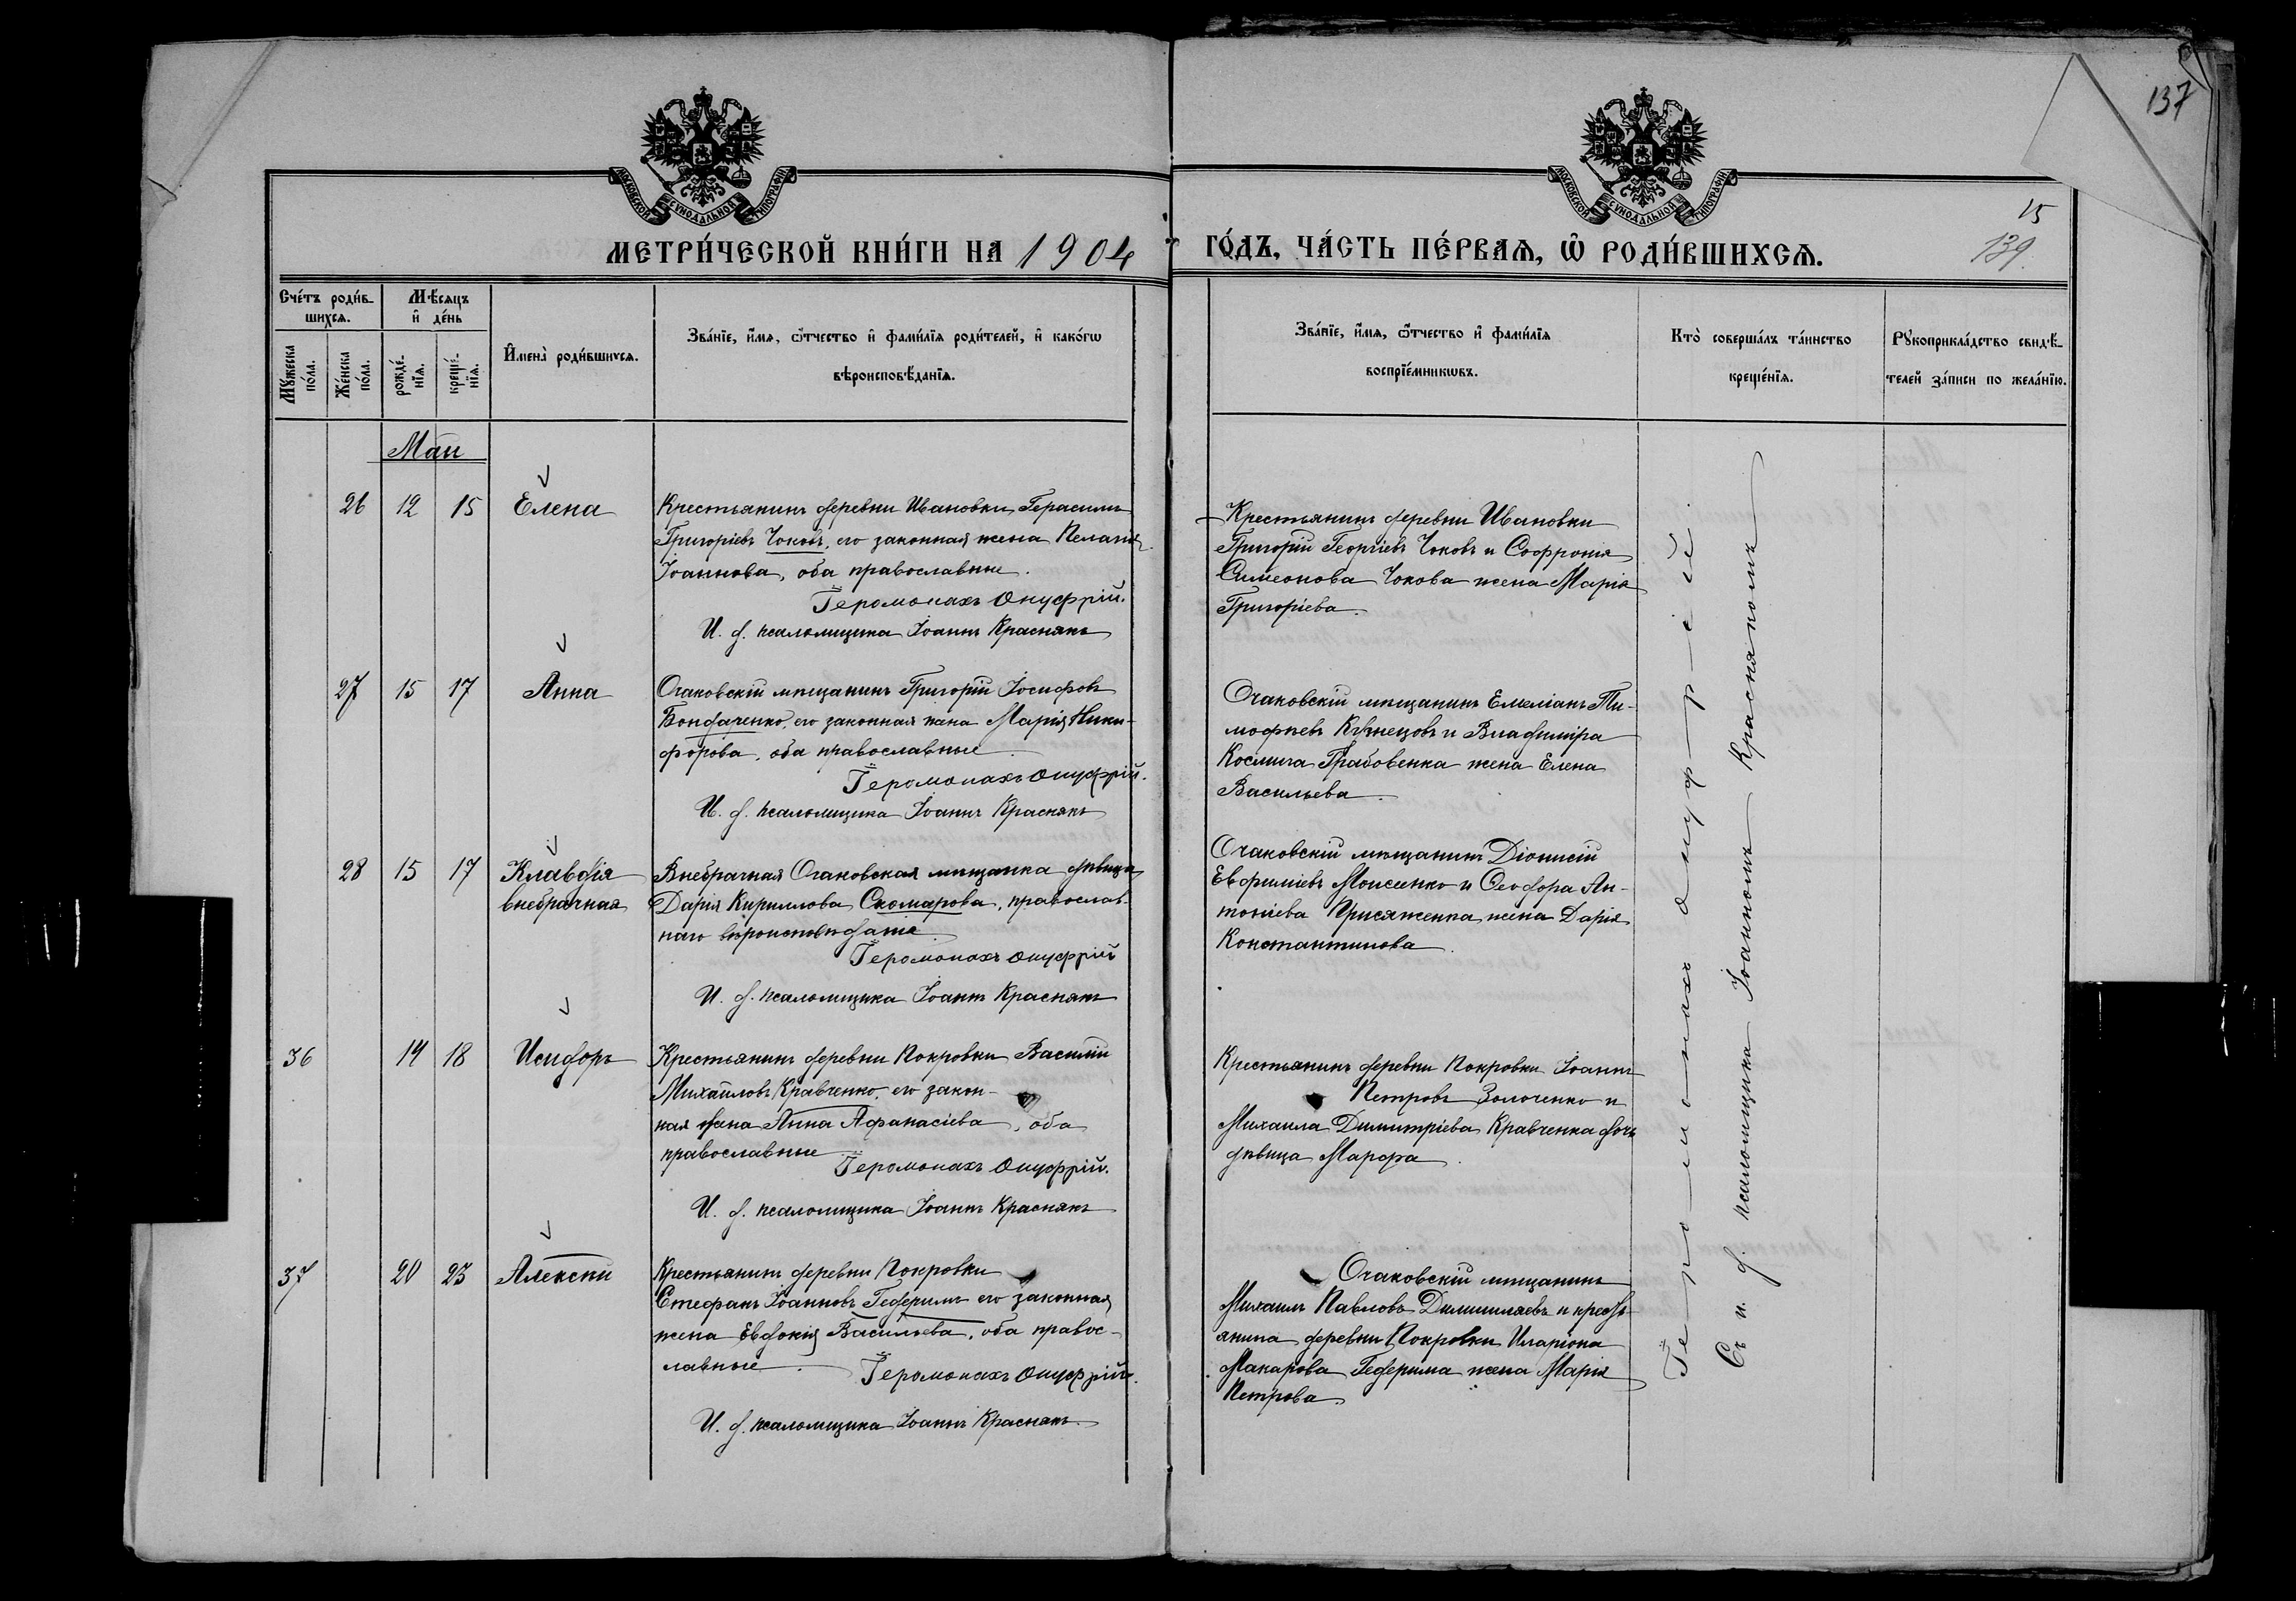 137
МОСКОВСКОЙ СУНОДАЛЬНОЙ ТИПОГРАФІИ
МОСКОВСКОЙ СУНОДАЛЬНОЙ ТИПОГРАФІИ
15
139.
МЕТРИ́ЧЕСКОЙ КНИ́ГИ НА 1904
ГО́ДЪ, ЧА́СТЬ ПЕ́РВАѦ, Ѡ҆ РОДИ́ВШИХСѦ.
Сче́тъ роди́в-
шихсѧ.
Мѣ́сѧцъ
и҆ де́нь
Мꙋ́жеска
по́ла.
Же́нска
по́ла.
рожде́-
нїѧ.
креще́-
нїѧ.
И҆мена̀ роди́вшихсѧ.
Зва́нїе, и҆́мѧ, ѻ҆́тчество и҆ фами́лїѧ роди́телей, и҆ како́гѡ
вѣроисповѣ́данїѧ.
Зва́нїе, и҆́мѧ, ѻ҆́тчество и҆ фами́лїѧ
воспрїе́мникѡвъ.
Кто̀ соверша́лъ та́инство
креще́нїѧ.
Рꙋкоприкла́дство свидѣ́-
телей за́писи по жела́нїю.
Май
26 12 15 Елена
Крестьянинъ деревни Ивановки Герасимъ
Григоріевъ Чоковъ, его законная жена Пелагія
Іоаннова, оба православные.
Іеромонахъ Онуфрій.
И. д. псаломщика Іоаннъ Краснякъ
Крестьянинъ деревни Ивановки
Григорій Георгіевъ Чоковъ и Софронія
Симеонова Чокова жена Марія
Григоріева.
27 15 17 Анна
Очаковскій мѣщанинъ Григорій Іосифовъ
Бондаченко, его законная жена Марія Ники-
форова, оба православные.
Іеромонахъ Онуфрій.
И. д. псаломщика Іоаннъ Краснякъ
Очаковскій мѣщанинъ Емеліанъ Ти-
мофѣевъ Кузнецовъ и Владиміра
Космича Грабовенка жена Елена
Васильева.
28 15 17 Клавдія
внебрачная
Внебрачная Очаковская мѣщанка дѣвица
Дарія Кириллова Скомарова, православ-
наго вѣроисповѣданія.
Іеромонахъ Онуфрій
И. д. псаломщика Іоаннъ Краснякъ
Очаковскій мѣщанинъ Діонисій
Евфиміевъ Моисеенко и Ѳеодора Ан-
тоніева Присяженка жена Дарія
Константинова.
36 14 18 Исидоръ
Крестьянинъ деревни Покровки Василій
Михайловъ Кравченко, его закон-
ная жена Анна Афанасіева, оба
православные.
Іеромонахъ Онуфрій.
И. д. псаломщика Іоаннъ Краснякъ
Крестьянинъ деревни Покровки Іоаннъ
Петровъ Золоченко и
Михаила Димитріева Кравченка дочь
дѣвица Марфа.
37 20 23 Алексѣй
Крестьянинъ деревни Покровки
Стефанъ Іоанновъ Гедеримъ его законная
жена Евдокія Васильева, оба правос-
лавные.
Іеромонахъ Онуфрій.
И. д. псаломщика Іоаннъ Краснякъ.
Очаковскій мѣщанинъ
Михаилъ Павловъ и кресть-
янина деревни Покровки Иларіона
Макарова Гедерима жена Марія
Петрова.
Іеромонахъ Онуфрій.
Съ и. д. псаломщика Іоанномъ Краснякомъ